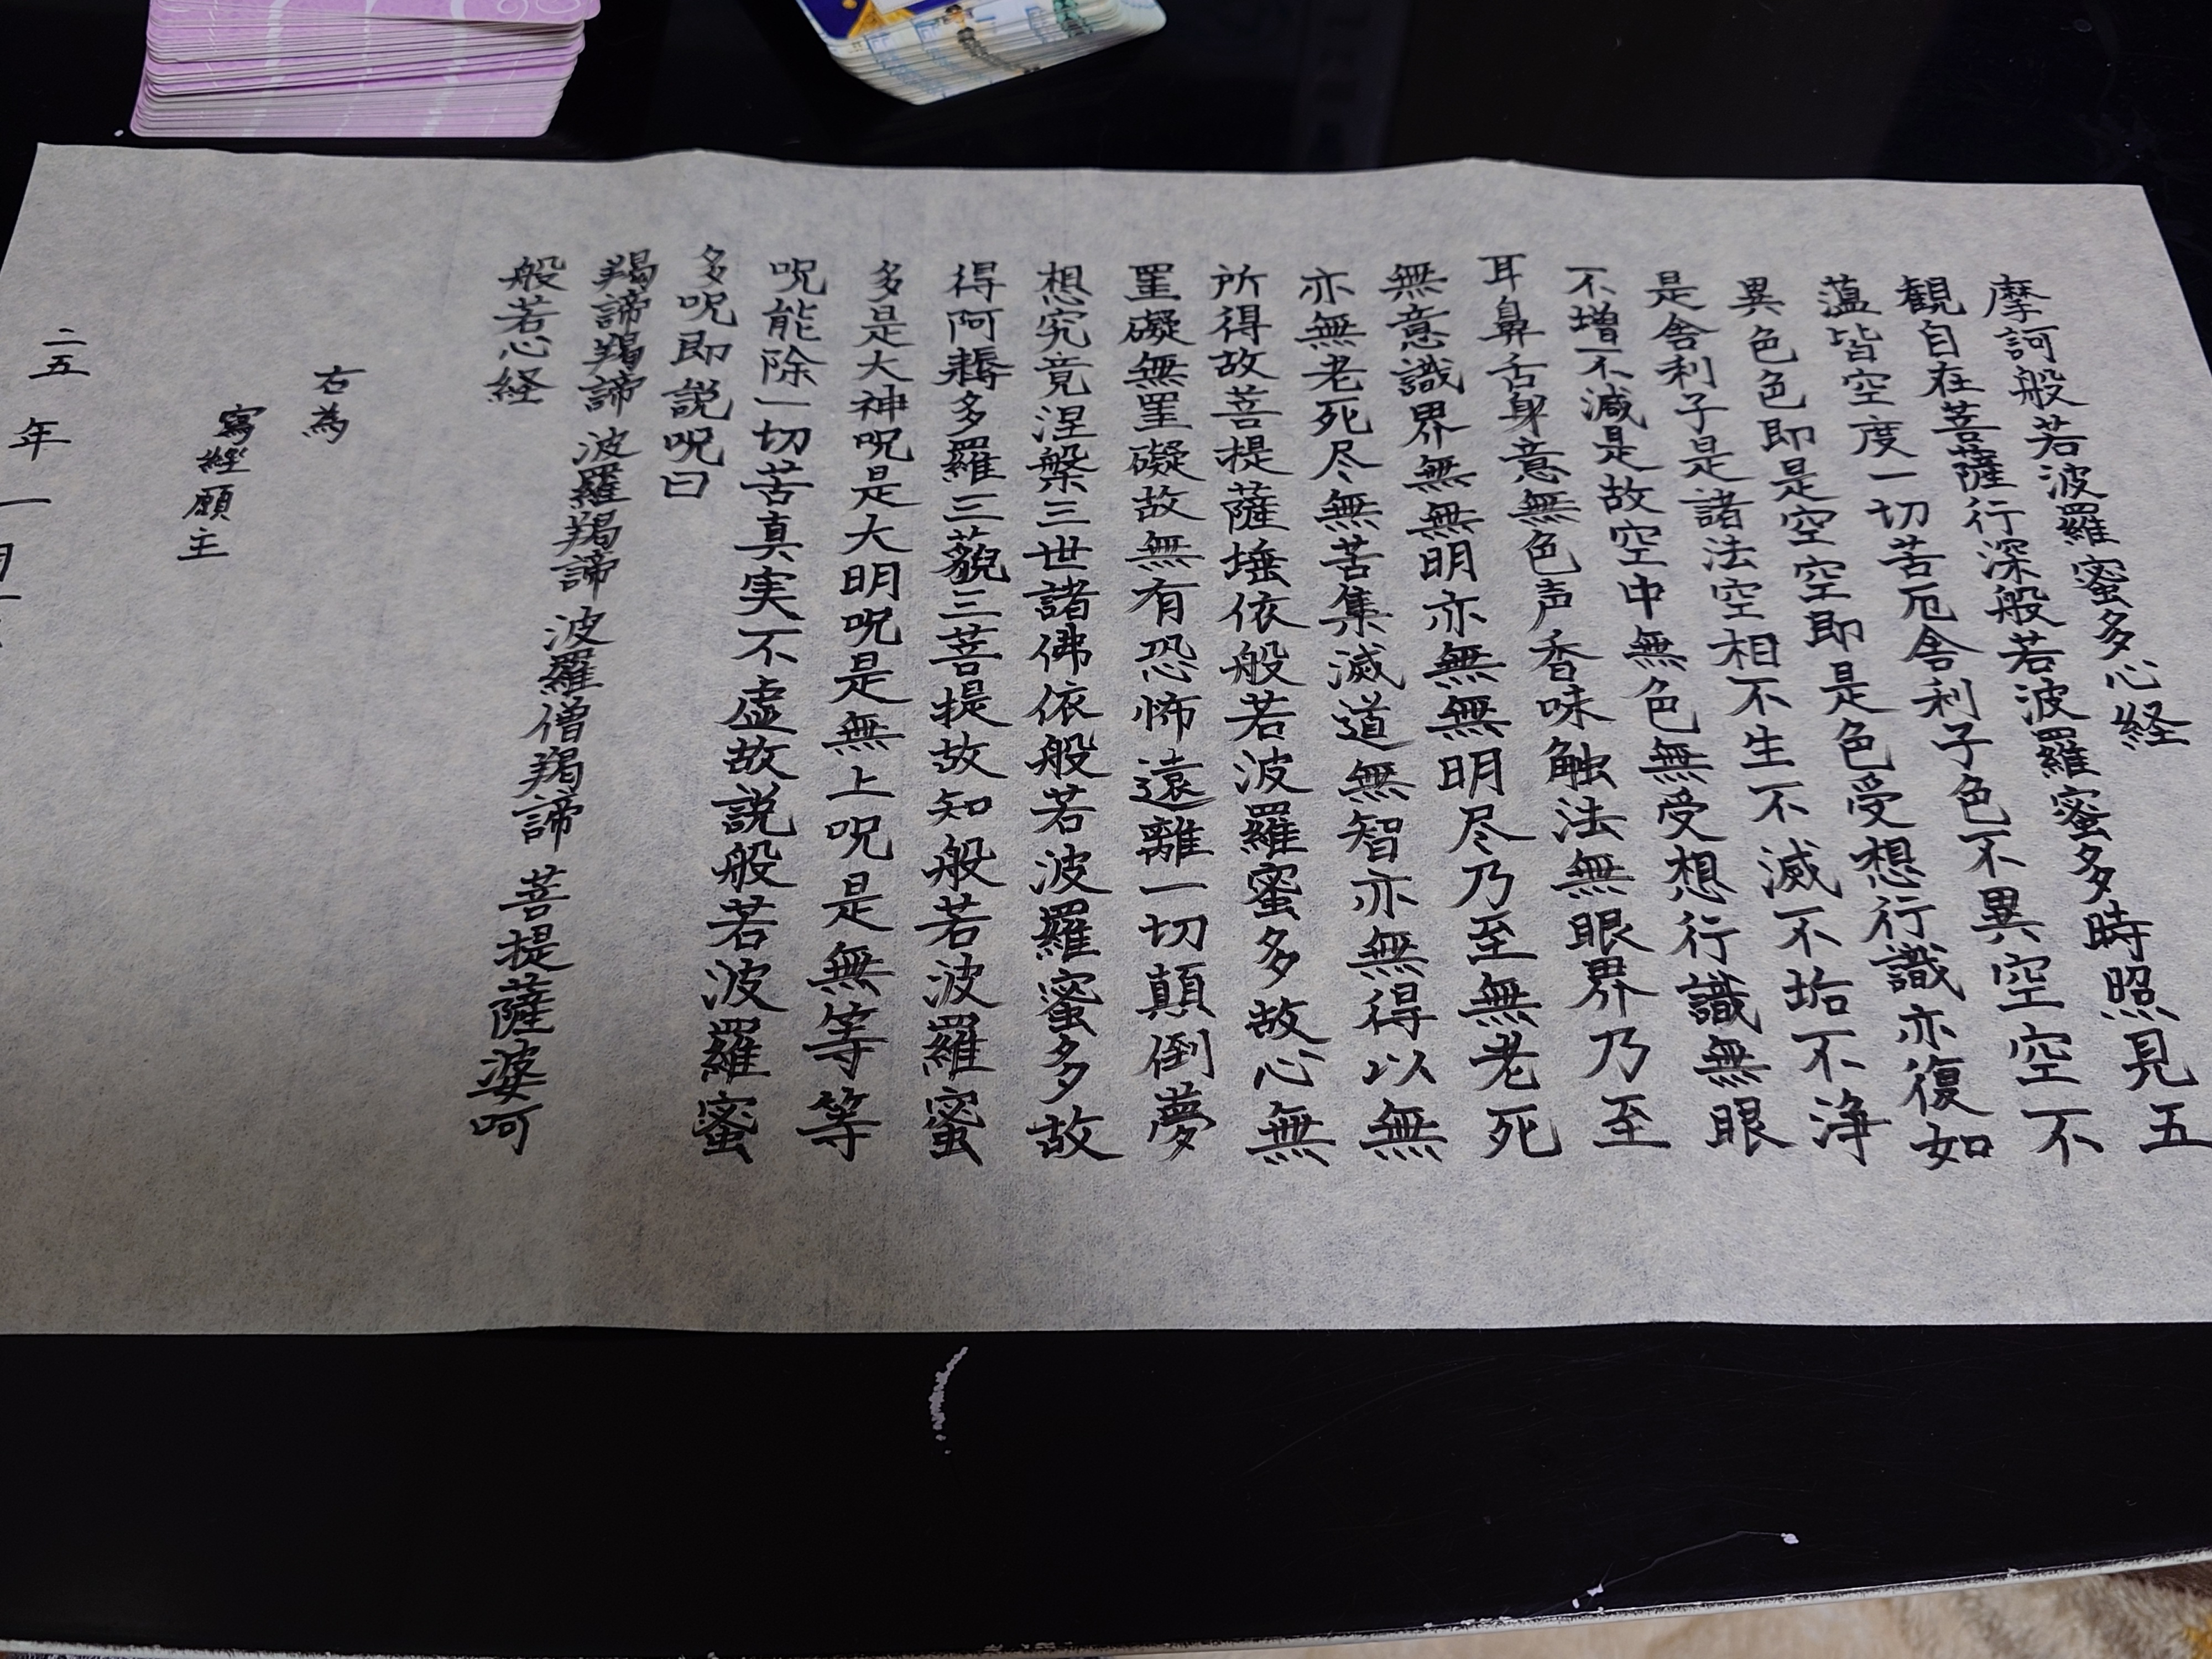 摩訶般若波羅蜜多心経
観自在菩薩行深般若波羅蜜多時照見五
薀皆空度一切苦厄舎利子色不異空空不
異色色即是空空即是色受想行識亦復如
是舎利子是諸法空相不生不滅不垢不浄
不増不減是故空中無色無受想行識無眼
耳鼻舌身意無色声香味触法無眼界乃至
無意識界無無明亦無無明尽乃至無老死
亦無老死尽無苦集滅道無智亦無得以無
所得故菩提薩埵依般若波羅蜜多故心無
罣礙無罣礙故無有恐怖遠離一切顛倒夢
想究竟涅槃三世諸佛依般若波羅蜜多故
得阿耨多羅三藐三菩提故知般若波羅蜜
多是大神呪是大明呪是無上呪是無等等
呪能除一切苦真実不虚故説般若波羅蜜
多呪即説呪曰
羯諦羯諦 波羅羯諦 波羅僧羯諦 菩提薩婆呵
般若心経
右為
寫經願主
二五年一月